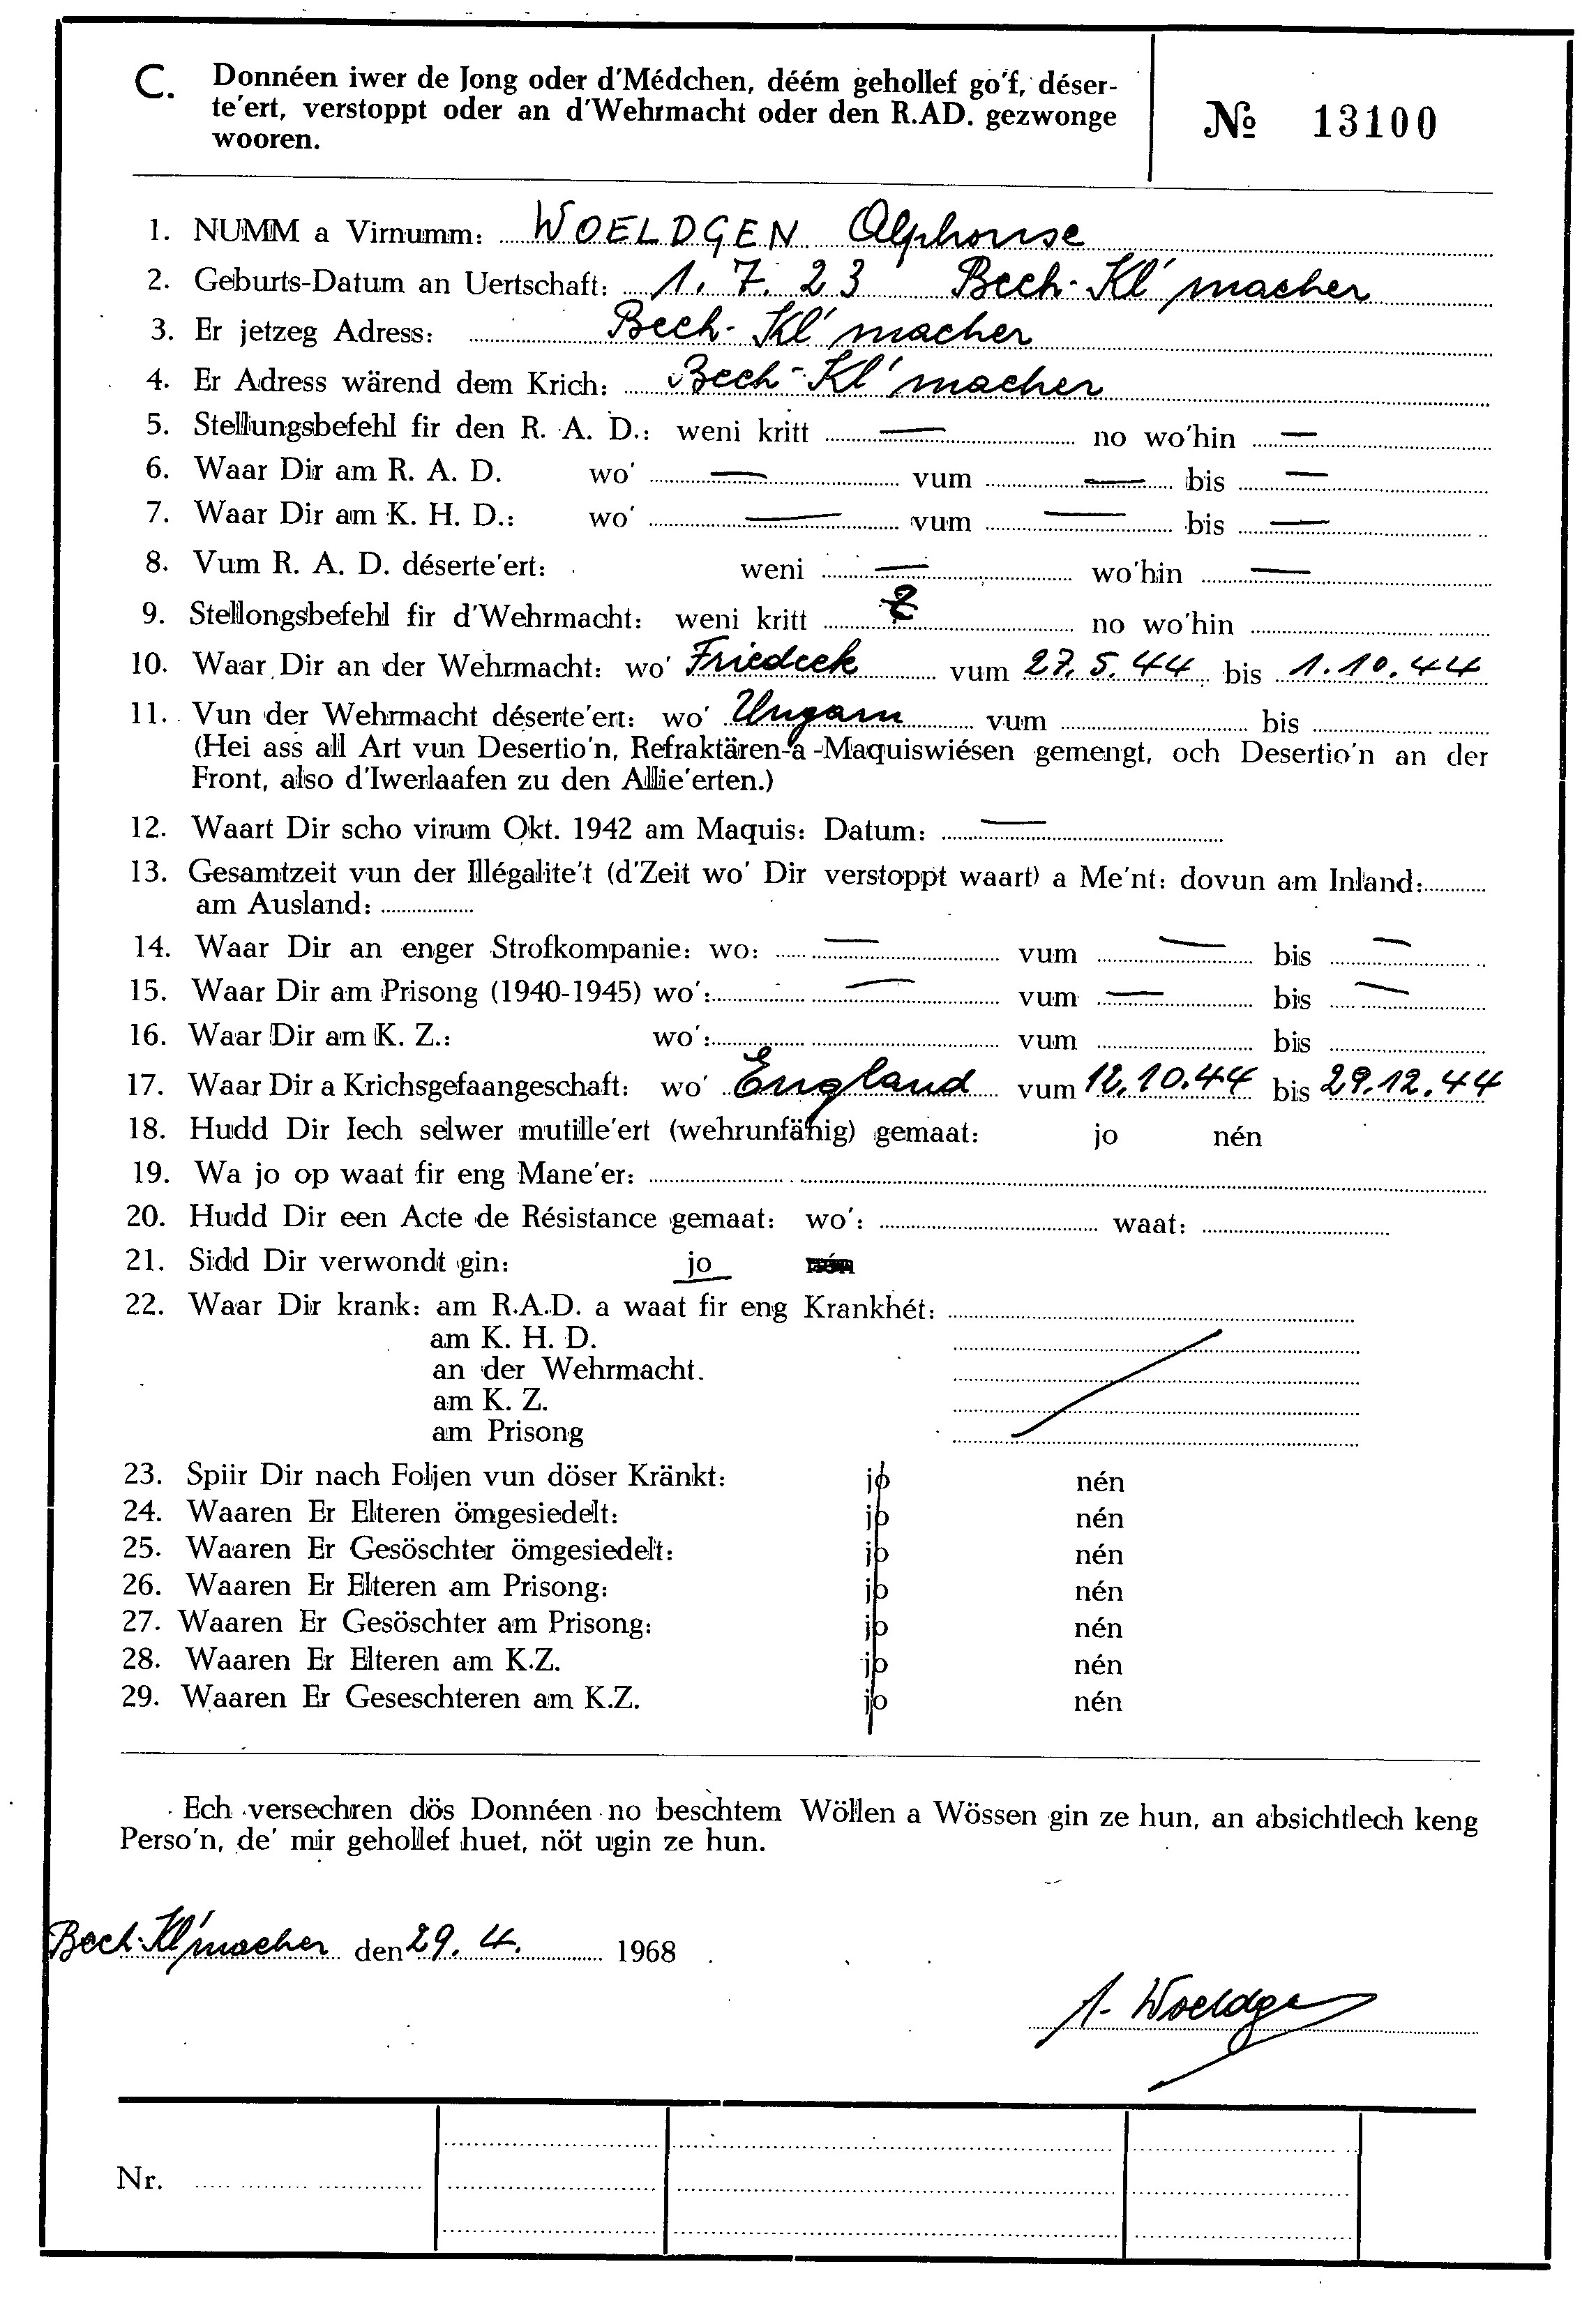 C. Donnéen iwer de Jong oder d'Médchen, déém gehollef go'f, déser-
te'ert, verstoppt oder an d'Wehrmacht oder den R.AD. gezwonge
wooren.
№ 13100
1. NUMM a Virnumm: WOELDGEN Alphonse
2. Geburts-Datum an Uertschaft: 1. 7. 23 Bech-Kl'macher
3. Er jetzeg Adress: Bech-Kl'macher
4. Er Adress wärend dem Krich: Bech-Kl'macher
5. Stellungsbefehl fir den R. A. D.: weni kritt — no wo'hin —
6. Waar Dir am R. A. D. wo' — vum — bis —
7. Waar Dir am K. H. D.: wo' — vum — bis —
8. Vum R. A. D. déserte'ert: weni — wo'hin —
9. Stellongsbefehl fir d'Wehrmacht: weni kritt no wo'hin
10. Waar Dir an der Wehrmacht: wo' Friedeck vum 27. 5. 44 bis 1. 10. 44
11. Vun der Wehrmacht déserte'ert: wo' Ungarn vum bis
(Hei ass all Art vun Desertio'n, Refraktären-a -Maquiswiésen gemengt, och Desertio'n an der
Front, also d'Iwerlaafen zu den Allie'erten.)
12. Waart Dir scho virum Okt. 1942 am Maquis: Datum: —
13. Gesamtzeit vun der Illégalite't (d'Zeit wo' Dir verstoppt waart) a Me'nt: dovun am Inland:
am Ausland:
14. Waar Dir an enger Strofkompanie: wo: — vum — bis —
15. Waar Dir am Prisong (1940-1945) wo': — vum — bis —
16. Waar Dir am K. Z.: wo': vum bis
17. Waar Dir a Krichsgefaangeschaft: wo' England vum 12. 10. 44 bis 29. 12. 44
18. Hudd Dir Iech selwer mutille'ert (wehrunfähig) gemaat: jo nén
19. Wa jo op waat fir eng Mane'er:
20. Hudd Dir een Acte de Résistance gemaat: wo': waat:
21. Sidd Dir verwondt gin: jo nén
22. Waar Dir krank: am R.A.D. a waat fir eng Krankhét:
am K. H. D.
an der Wehrmacht.
am K. Z.
am Prisong
23. Spiir Dir nach Foljen vun döser Kränkt: jo nén
24. Waaren Er Elteren ömgesiedelt: jo nén
25. Waaren Er Gesöschter ömgesiedelt: jo nén
26. Waaren Er Elteren am Prisong: jo nén
27. Waaren Er Gesöschter am Prisong: jo nén
28. Waaren Er Elteren am K.Z. jo nén
29. Waaren Er Geseschteren am K.Z. jo nén
Ech versechren dös Donnéen no beschtem Wöllen a Wössen gin ze hun, an absichtlech keng
Perso'n, de' mir gehollef huet, nöt ugin ze hun.
Bech-Kl'macher den 29. 4. 1968
A. Woeldgen
Nr.